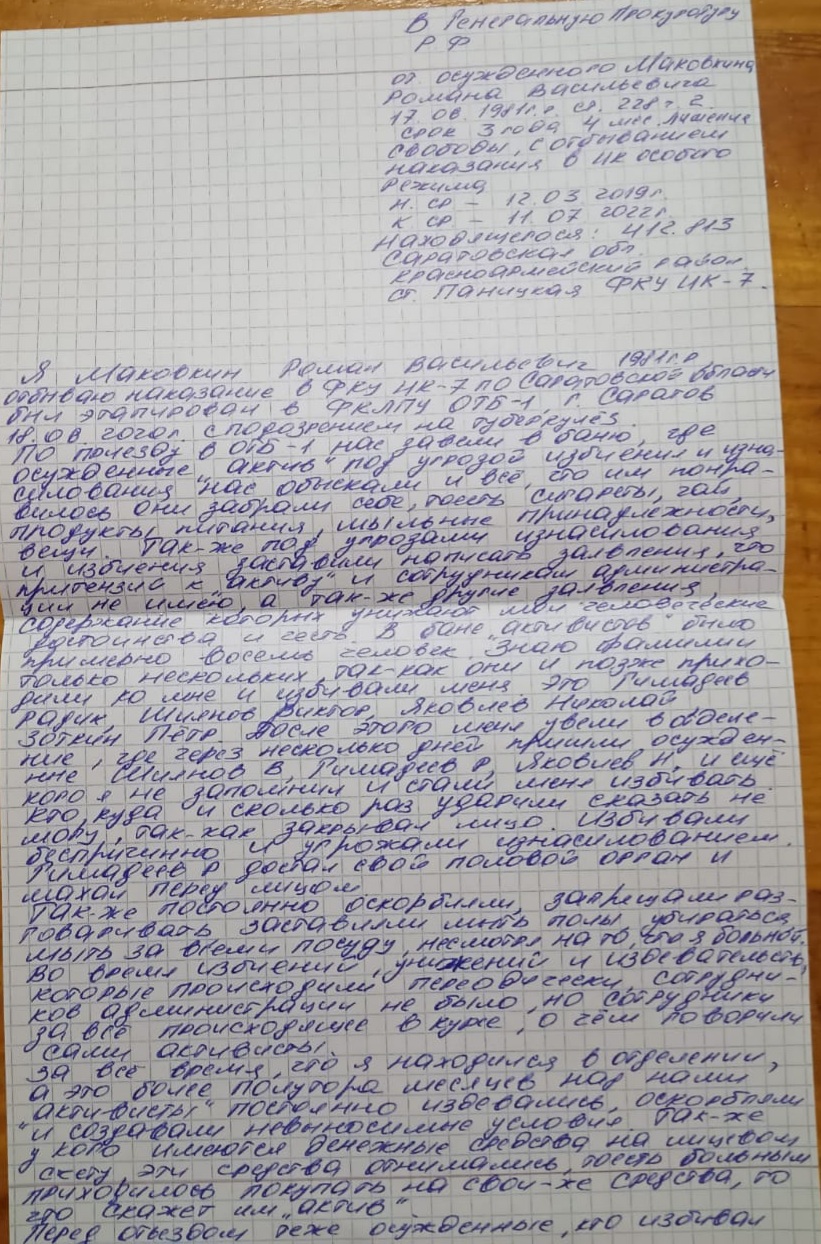 В Генеральную Прокуратуру
РФ
от осужденного Маковкина
Романа Васильевича
17.06.1981г.р. ст. 228 ч. 2.
срок 3 года 4 мес. лишения
свободы, с отбыванием
наказания в ИК особого
режима
н. ср – 12.03 2019г.
к ср – 11.07 2022г.
Находящегося: 412.813
Саратовская обл.
Красноармейский район.
ст. Паницкая ФКУ ИК-7.
Я Маковкин Роман Васильевич 1981г.р
отбываю наказание в ФКУ ИК-7 по Саратовской области
был этапирован в ФКЛПУ ОТБ-1 г. Саратов
18.06 2020г. с подозрением на туберкулёз.
По приезду в ОТБ-1 нас завели в баню, где
осужденные "актив" под угрозой избиения и изна-
силования нас обыскали и всё, что им понра-
вилось они забрали себе, тоесть сигареты, чай,
продукты питания, мыльные принадлежности,
вещи. Так-же под угрозами изнасилования
и избиения заставили написать заявления, что
притензий к "активу" и сотрудникам администра-
ции не имею, а так-же другие заявления,
содержание которых унижают мои человеческие
достоинства и честь. В бане "активистов" было
примерно восемь человек. Знаю фамилии
только нескольких, так-как они и позже прихо-
дили ко мне и избивали меня. Это Гимадеев
Радик, Шиянов Виктор, Яковлев Николай
Зоткин Пётр. После этого меня увели в отделе-
ние, где через несколько дней пришли осужден-
нне Шиянов В, Гимадеев Р, Яковлев Н. и ещё
кого я не запомнил и стали меня избивать.
Кто, куда и сколько раз ударили сказать не
могу, так-как закрывал лицо. Избивали
беспричинно и угрожали изнасилованием.
Гимадеев Р достал свой половой орган и
махал перед лицом.
Так-же постоянно оскорбляли, запрещали раз-
говаривать заставляли мыть полы убираться,
мыть за всеми посуду, несмотря на то, что я больной.
Во время избиений, унижений и издевательств,
которые происходили переодически, сотрудни-
ков администрации не было, но сотрудники
за всё происходящее в курсе, о чём говорили
сами активисты.
За всё время, что я находился в отделении,
а это более полутора месяцев над нами
"активисты" постоянно издевались, оскорбляли
и создавали невыносимые условия. Так-же
у кого имеются денежные средства на лицевом
скету эти средства отнимались, тоесть больным
приходилось покупать на свои-же средства, то
что скажет им "актив".
Перед отьездом теже осужденные, кто избивал